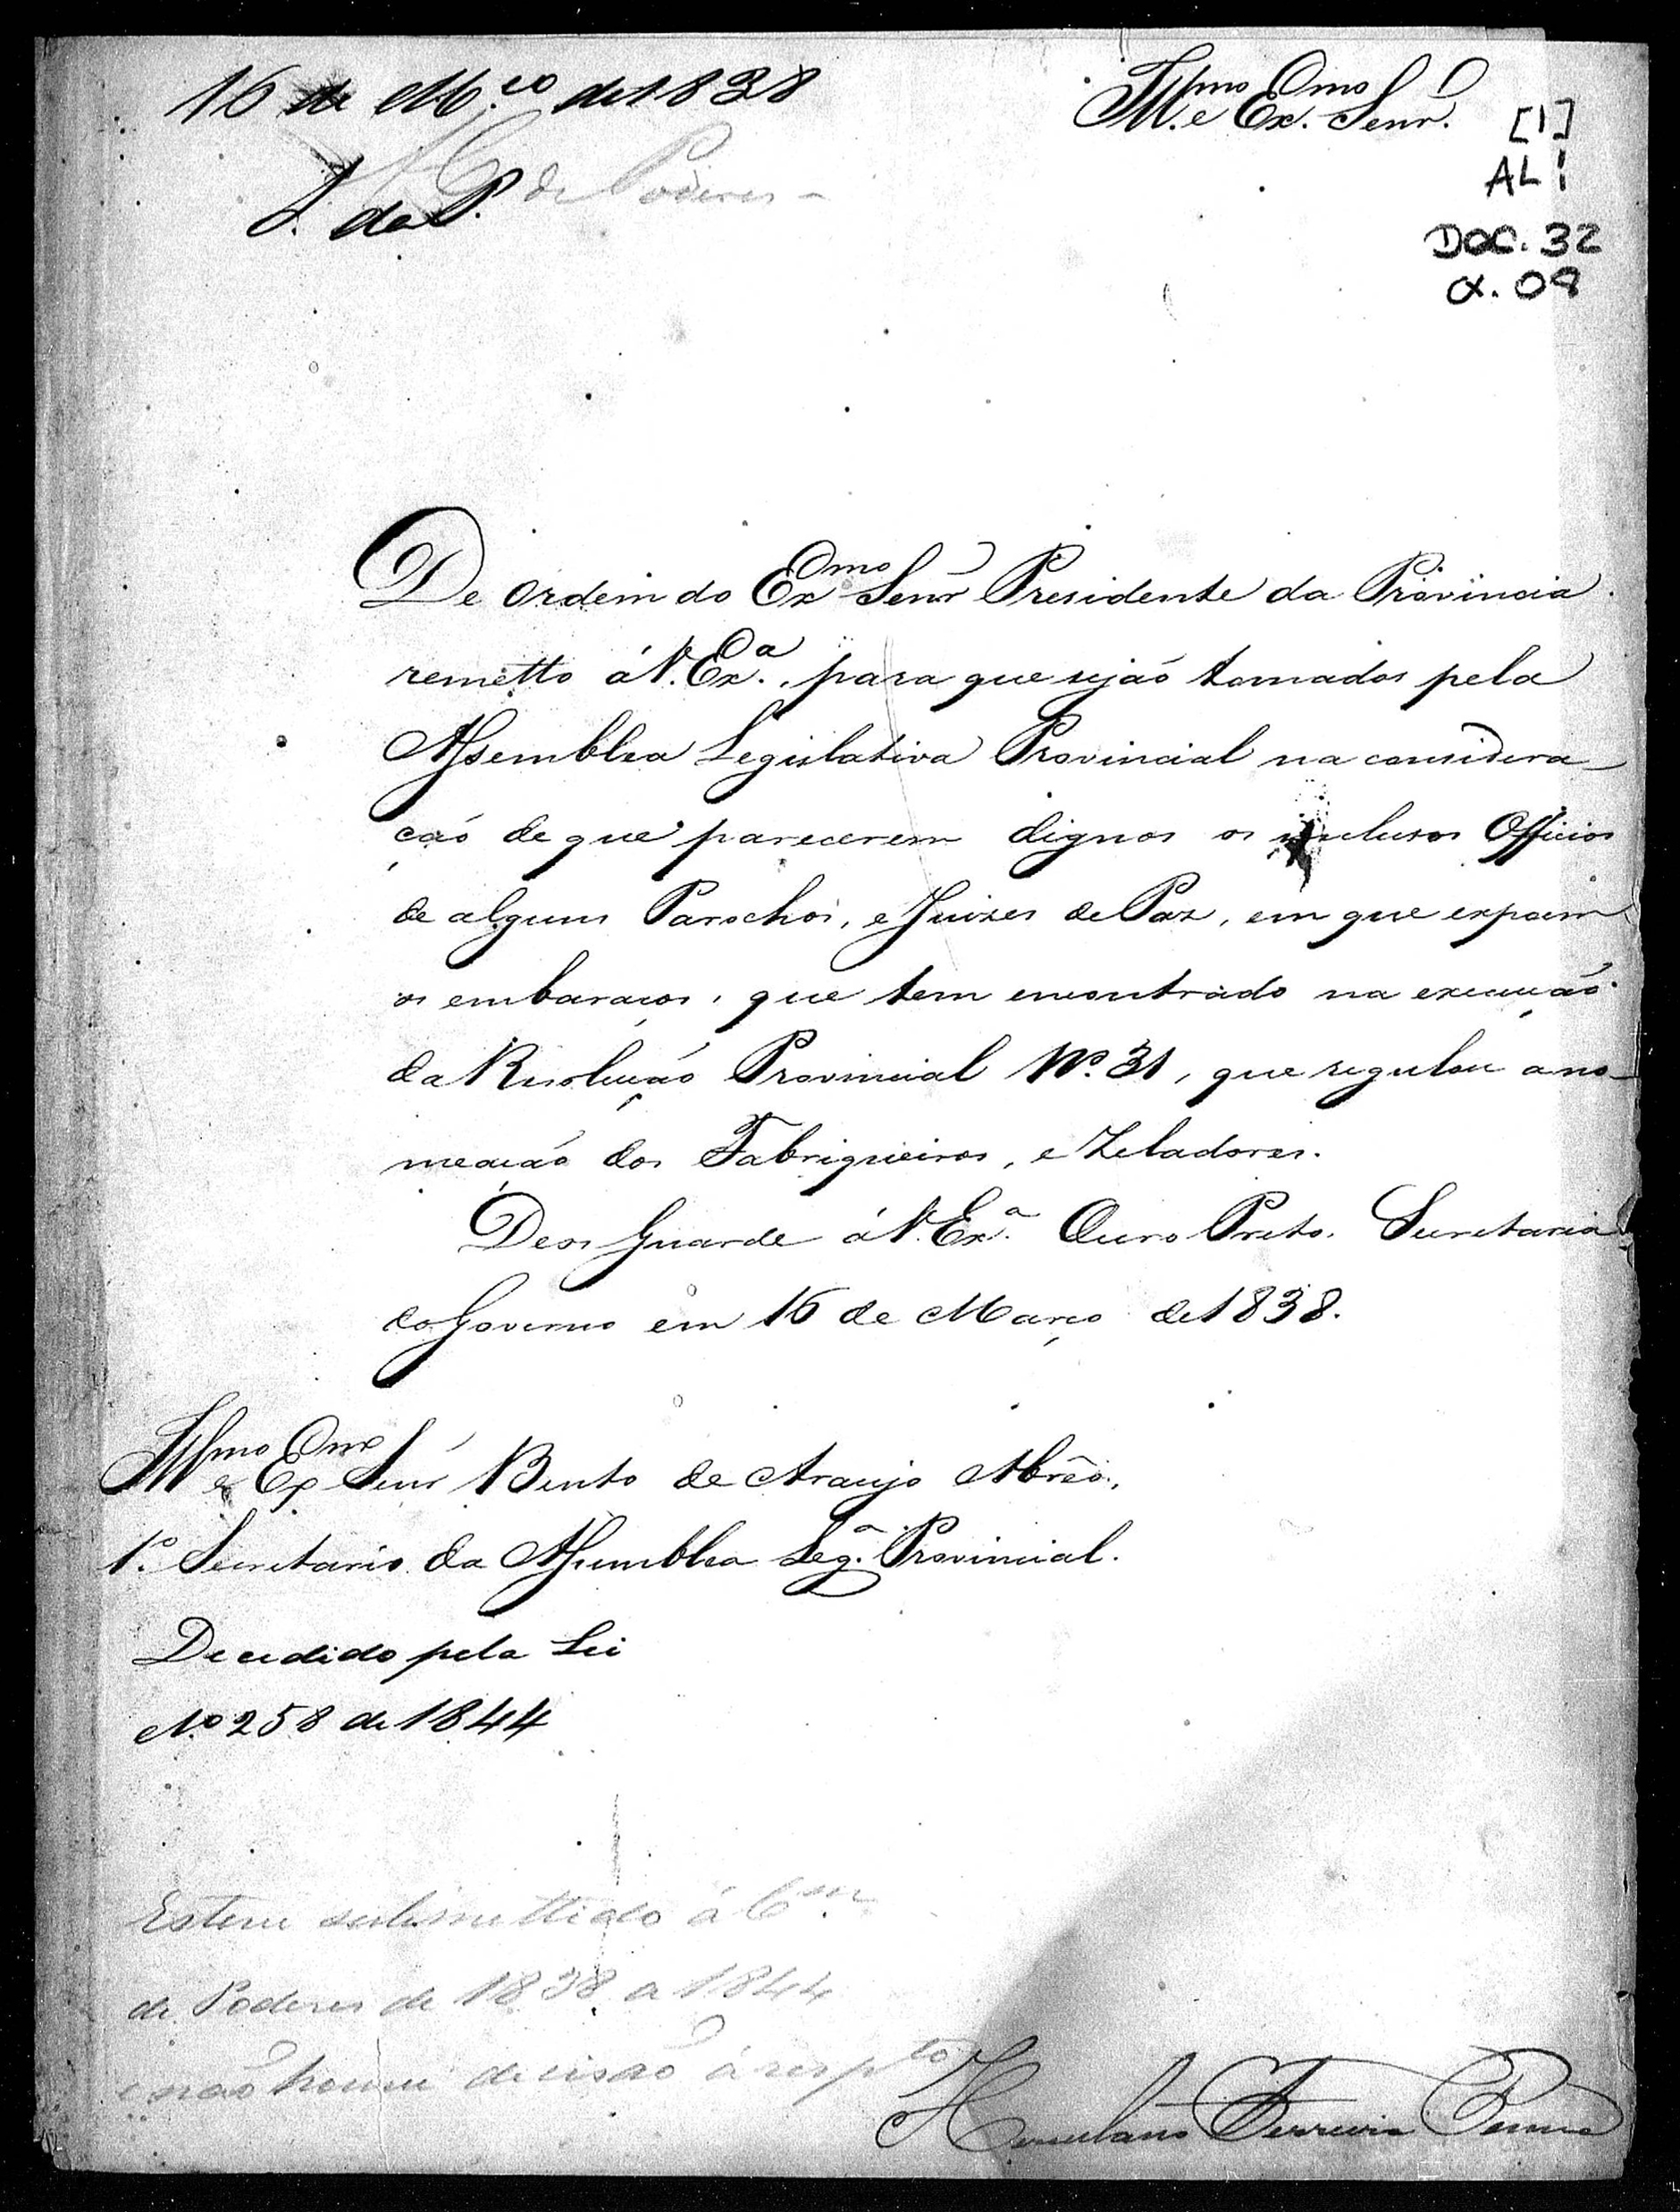 16 de M.ço de 1838
Illmo e Exmo Senr.
[1]
AL 1
DOC. 32
CX. 09
de Poderes
De ordem do Exmo Senr Presidente da Provincia
remetto á V. Exa., para que sejão tomados pela
Assemblea Legislativa Provincial na considera-
ção de que parecerem dignos os inclusos Officios
de alguns Parochos, e Juizes de Paz, em que expoem
os embaraços, que tem encontrado na execução
da Resolução Provincial Nº. 31, que regulou a no-
meação dos Fabriqueiros, e Zeladores.
Deos Guarde á V. Exa. Ouro Preto. Secretaria
do Governo em 16 de Março de 1838.
Illmo e Exmo Senr Bento de Araujo Abrêo.
1º. Secretario da Assemblea Lega. Provincial.
Decedido pela Lei
Nº 258 de 1844
Esteve submettido á Com.
de Poderes de 1838 a 1844
e não houve decisão á respto
Herculano Ferreira Penna